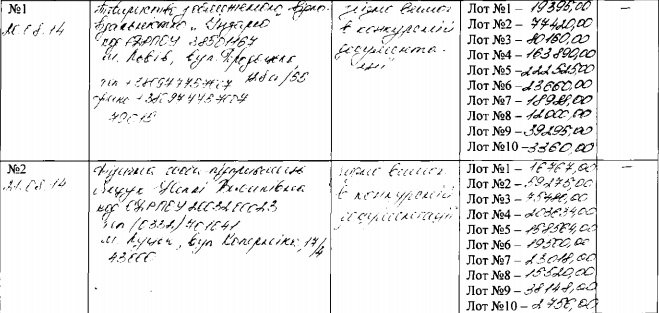 №1
20.08.14
Товариство з обмеженою відпо-
відальністю "
код ЄДРПОУ
м. Львів, вул. Городоцька,
тел +380977757707
факс +380977757707
79015
згідно вимог
в конкурсній
документа-
ції
Лот №1 – 19395,00
Лот №2 – 77420,00
Лот №3 – 80160,00
Лот №4 – 163890,00
Лот №5 – 222525,00
Лот №6 – 23660,00
Лот №7 – 18928,00
Лот №8 – 12000,00
Лот №9 – 39295,00
Лот №10 – 3360,00
–
№2
21.08.14
Фізична особа підприємець
код ЄДРПОУ
тел (0332)
м. Луцьк, вул Коперніка, 17/4
43000
згідно вимог
в конкурсній
документації
Лот №1 – 16767,00
Лот №2 – 59276,00
Лот №3 – 75480,00
Лот №4 – 203634,00
Лот №5 – 158564,00
Лот №6 – 19500,00
Лот №7 – 23018,00
Лот №8 – 15520,00
Лот №9 – 38148,00
Лот №10 – 2756,00
–